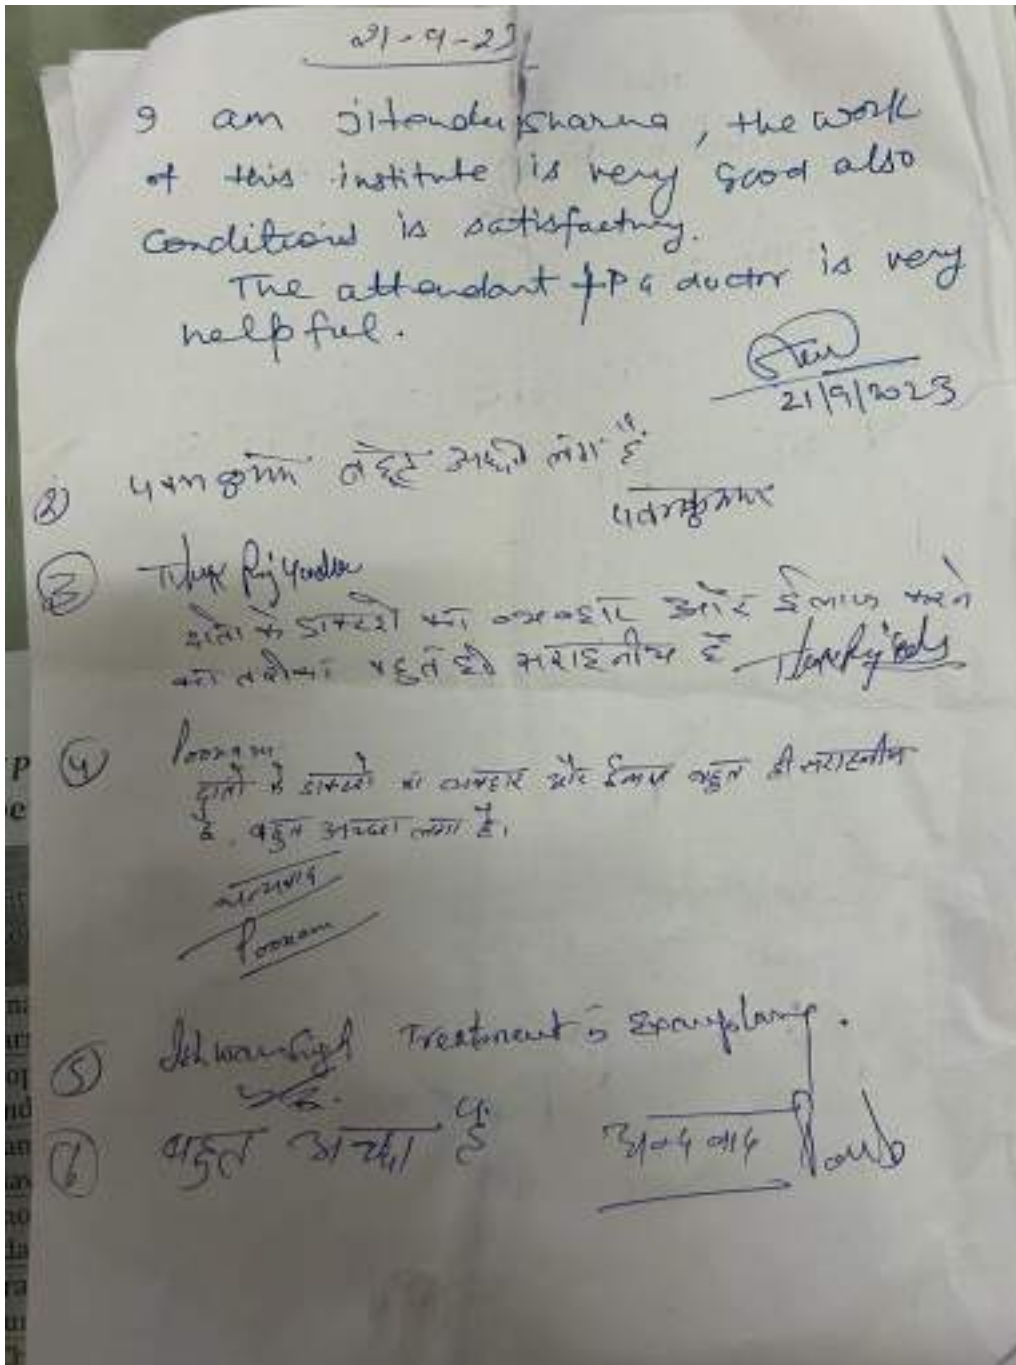 21-9-23
I am jitender sharma, the work
of this institute is very good also
conditions is satisfactory.
The attendant + PG doctor is very
helpful.
21/9/2023
2) पवन कुमार बहुत अच्छा लगा है
पवनकुमार
3)
दांतो के डाक्टरो का व्यवहार और ईलाज करने
का तरीका बहुत ही सराहनीय है
4) Poonam
दांतो के डाक्टरो का व्यवहार और ईलाज बहुत ही सराहनीय
है, बहुत अच्छा लगा है।
धन्यवाद
Poonam
5) Ishwar Singh Treatment is Exampleary.
6) बहुत अच्छा है